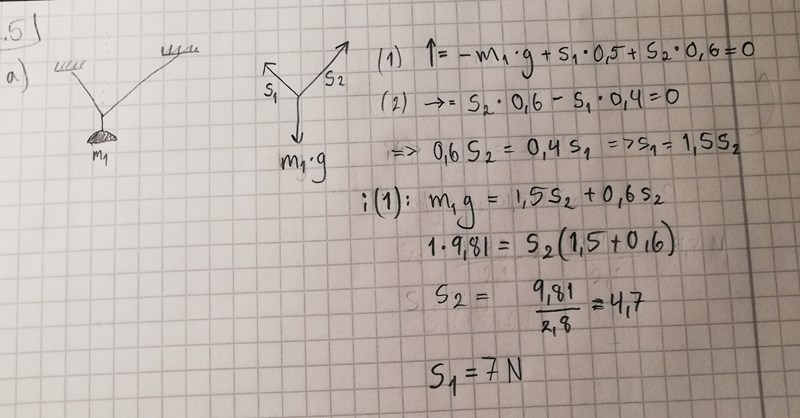 .5)
a)
m₁
S₁
S₂
m₁·g
(1) ↑= -m₁·g + S₁·0,5 + S₂·0,6 = 0
(2) →= S₂·0,6 - S₁·0,4 = 0
=> 0,6 S₂ = 0,4 S₁ => S₁ = 1,5 S₂
i(1): m₁g = 1,5 S₂ + 0,6 S₂
1·9,81 = S₂(1,5 + 0,6)
S₂ = 9,81/2,8 = 4,7
S₁ = 7 N